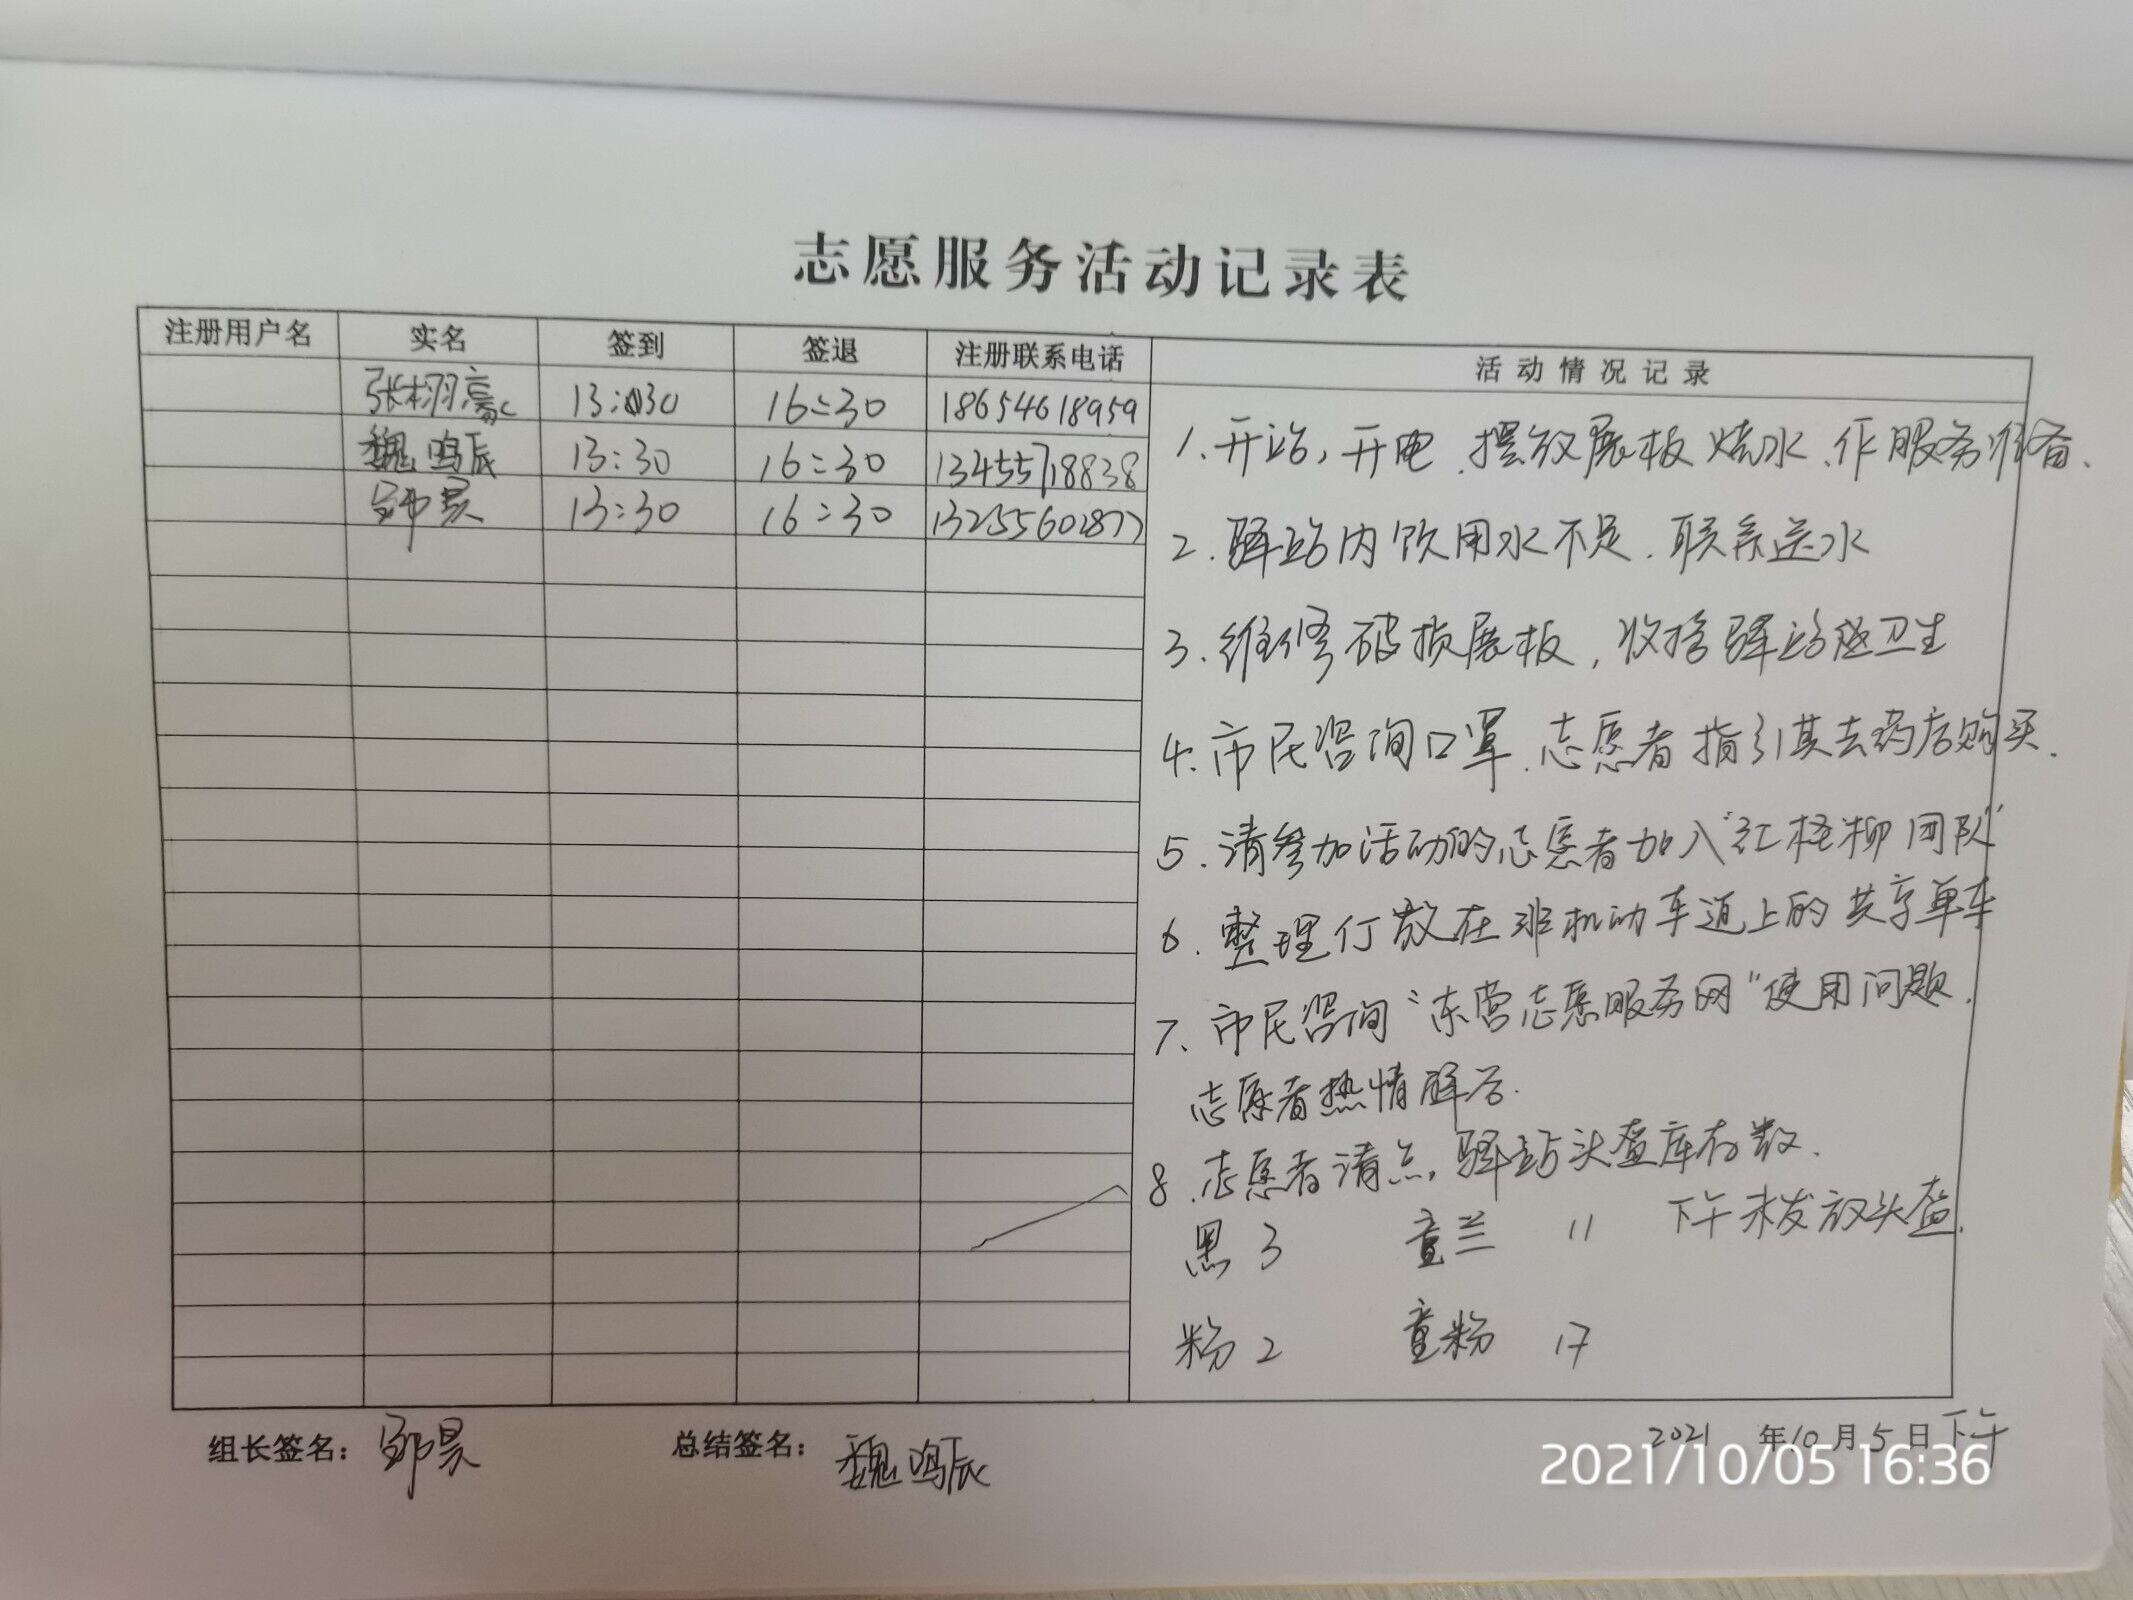 志愿服务活动记录表
注册用户名 实名 签到 签退 注册联系电话 活动情况记录
张栩 13:30 16:30 18654618959
魏鸣辰 13:30 16:30 13455718838
昊 13:30 16:30 13255602877
1.开站,开电.摆放展板烧水.作服务准备.
2.驿站内饮用水不足.联系送水
3.维修破损展板,收拾驿站卫生
4.市民咨询口罩.志愿者指引其去药店购买.
5.请参加活动的志愿者加入"红柽柳团队"
6.整理停放在非机动车道上的共享单车
7.市民咨询"东营志愿服务网"使用问题.
志愿者热情解答.
8.志愿者清点,驿站头盔库存数.
黑3 童兰 11 下午未发放头盔.
粉2 童粉 17
组长签名: 昊 总结签名: 魏鸣辰 2021 年10月5日下午
2021/10/05 16:36